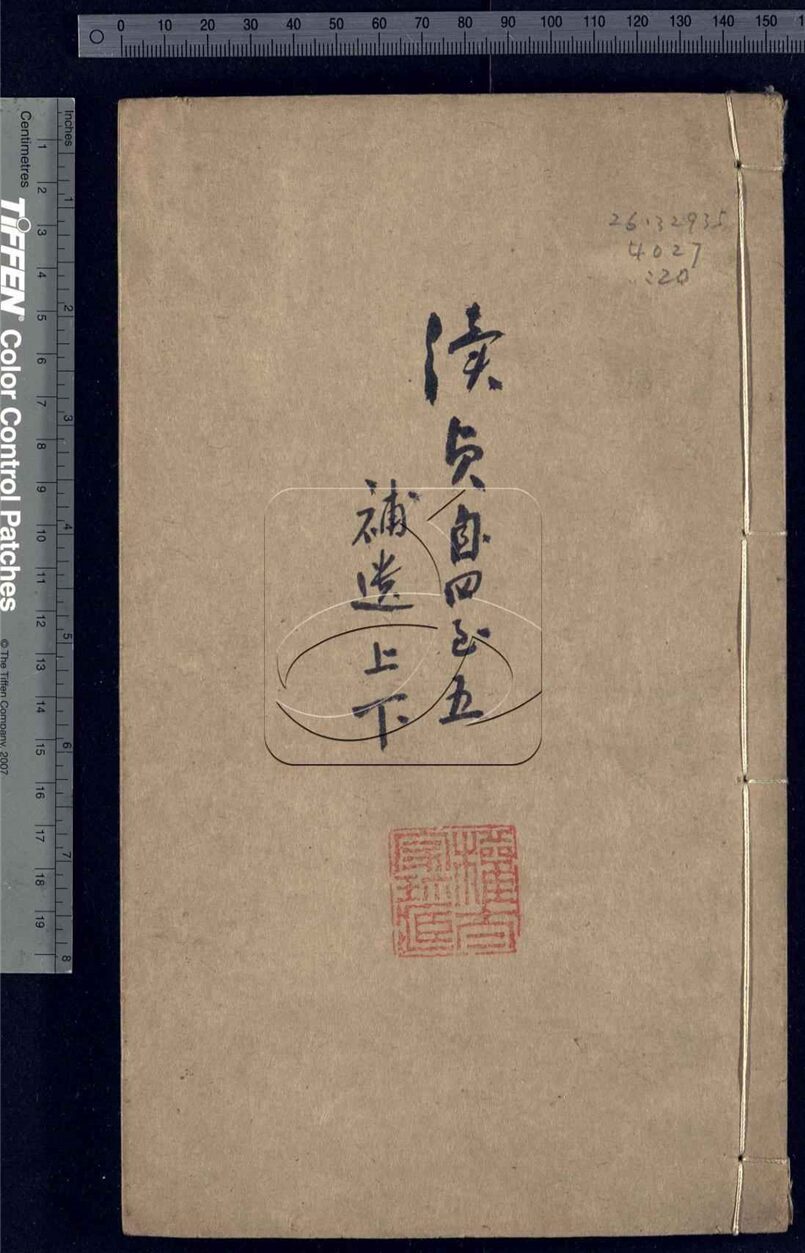 0 10 20 30 40 50 60 70 80 90 100 110 120 130 140 150
26.32935
4027
:20
續貞自四至五
補遺上下
Inches
1 2 3 4 5 6 7 8
Centimetres
1 2 3 4 5 6 7 8 9 10 11 12 13 14 15 16 17 18 19
TIFFEN® Color Control Patches
© The Tiffen Company, 2007